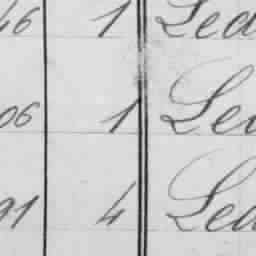 46 1 Lea
06 1 Lea
91 4 Lea